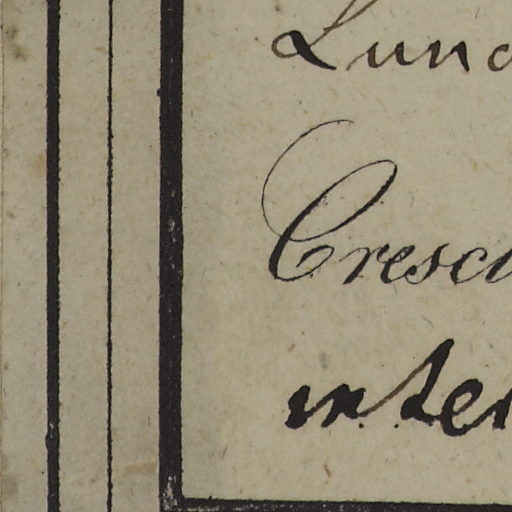 Lunc
Cresc
inter